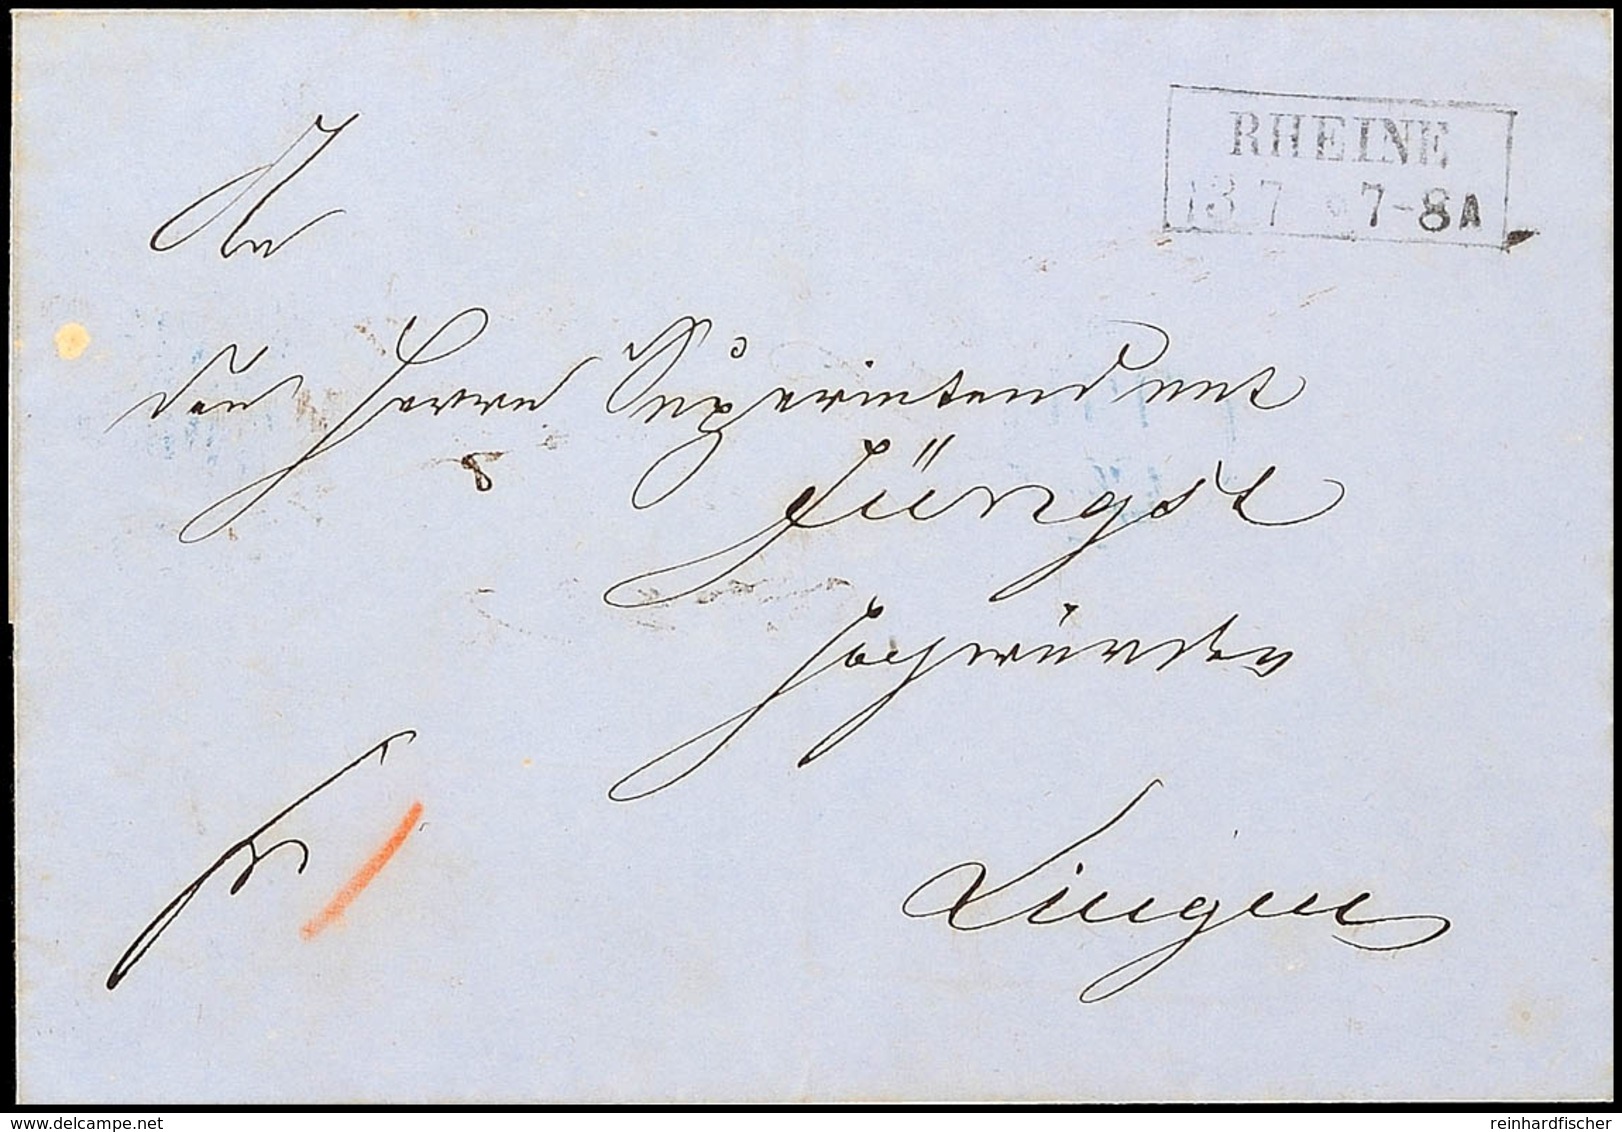 RHEINE
13 7 * 7-8 A
An
den Herrn Superintendent
Jüngst
Hochwürden
fr
Lingen
delcampe.net
reinhardfischer